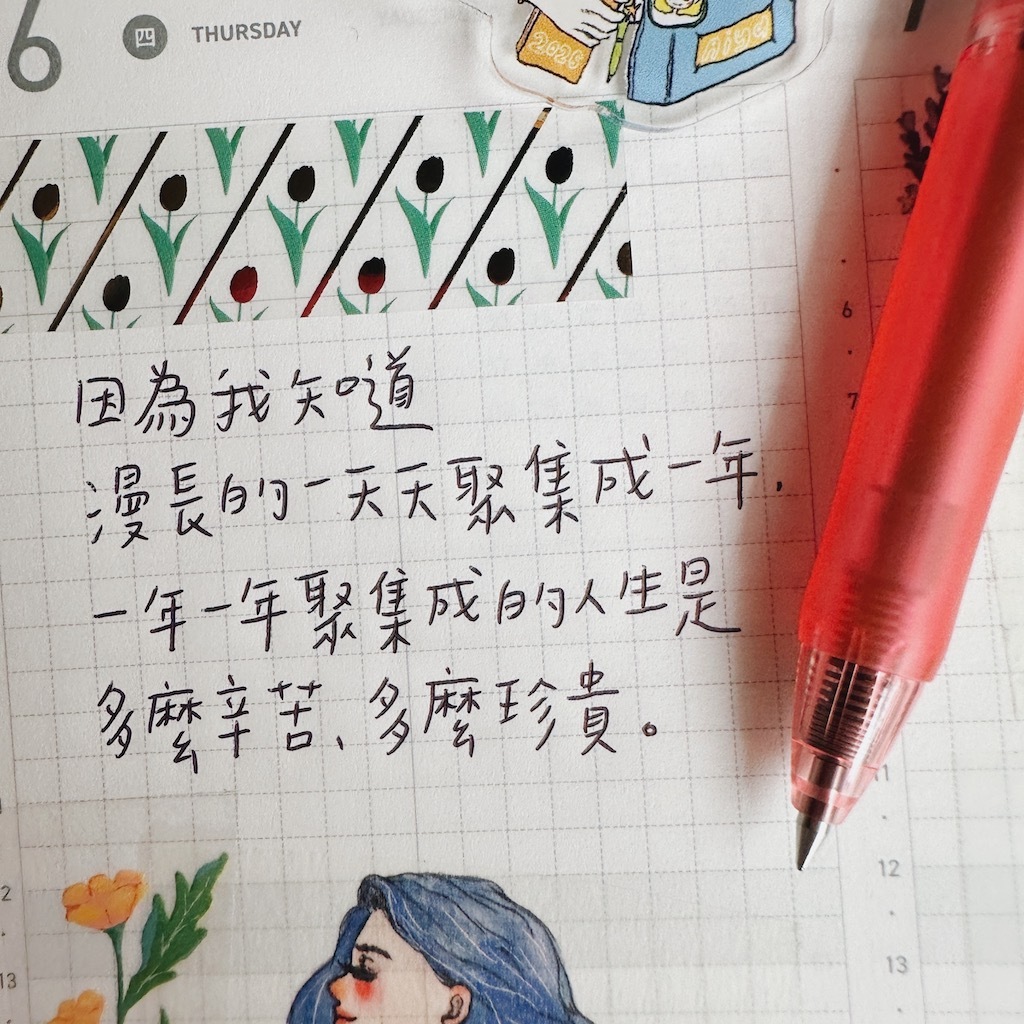 6 四 THURSDAY
2026
因為我知道
漫長的一天天聚集成一年.
一年一年聚集成的人生是
多麼辛苦、多麼珍貴。
6
7
11
12
12
13
13